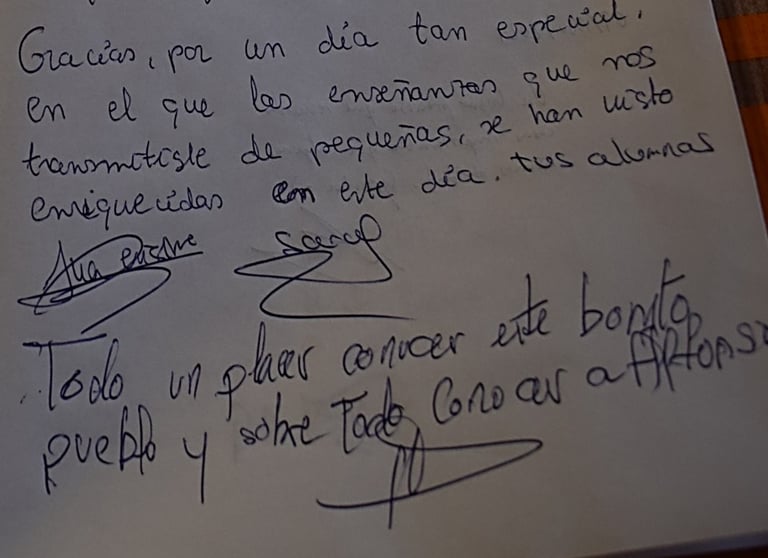 Gracias, por un día tan especial,
en el que las enseñanzas que nos
transmitiste de pequeñas, se han visto
enriquecidas en este día. tus alumnas
Sara
Todo un placer conocer este bonito
pueblo y sobre Todo Conocer a Alfonso